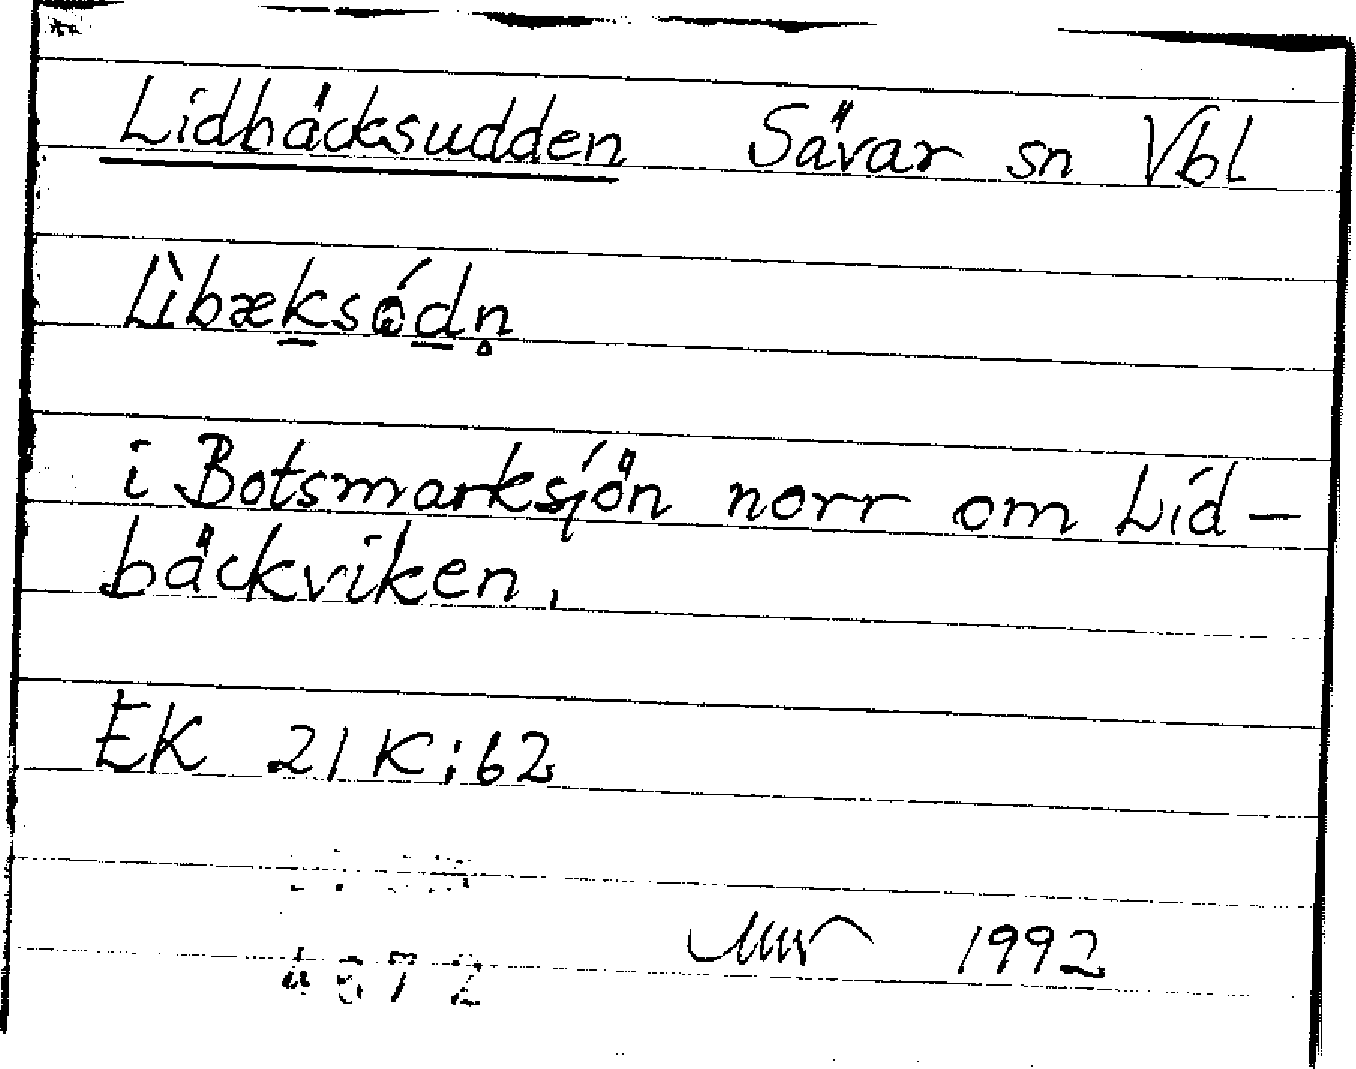 Lidbäcksudden Sävar sn Vbl
Lìbæksódn̥
i Botsmarksjön norr om Lid-
bäckviken.
EK 21K:62
1992